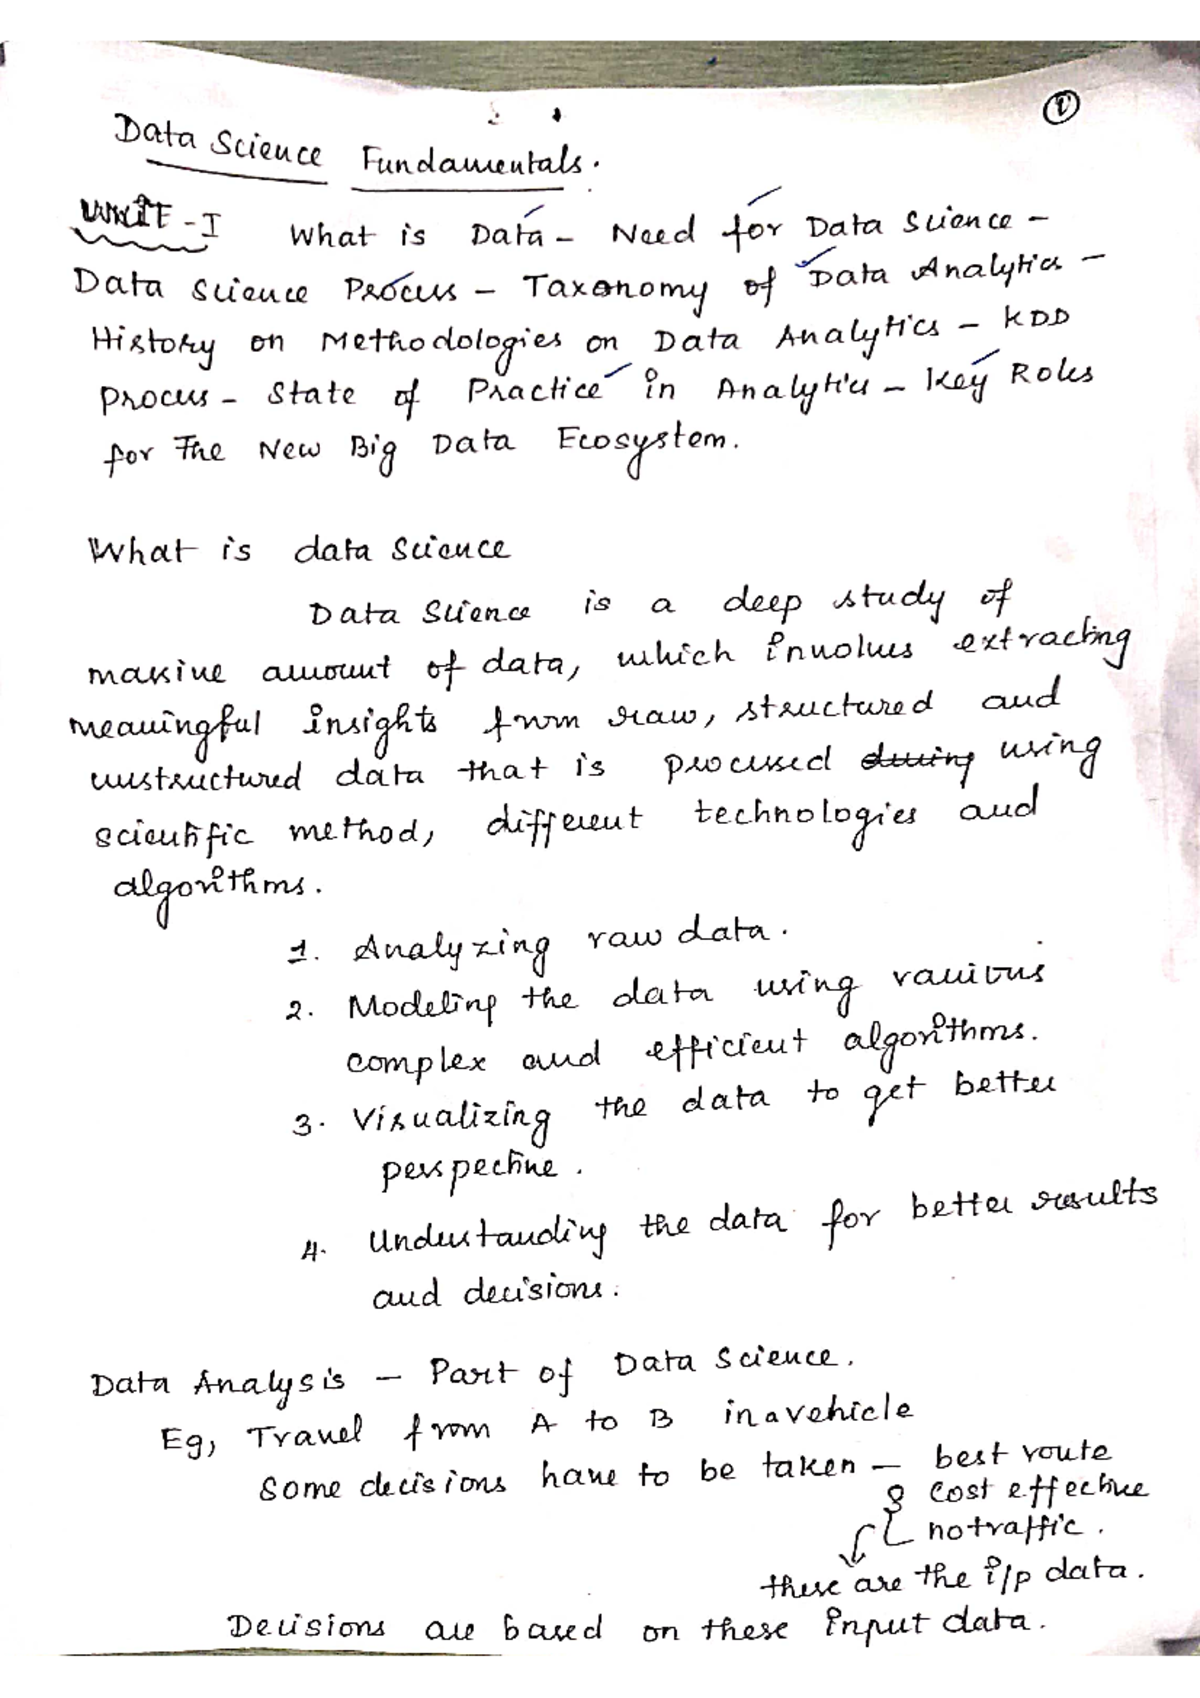 ①
Data Science Fundamentals.
UNIT - I What is Data - Need for Data Science -
Data Science Process - Taxonomy of Data Analytics -
History on Methodologies on Data Analytics - KDD
Process - State of Practice in Analytics - Key Roles
for The New Big Data Ecosystem.
What is data Science
Data Science is a deep study of
massive amount of data, which involves extracting
meaningful insights from raw, structured and
unstructured data that is processed during using
scientific method, different technologies and
algorithms.
1. Analyzing raw data.
2. Modeling the data using various
complex and efficient algorithms.
3. Visualizing the data to get better
perspective.
4. Understanding the data for better results
and decisions.
Data Analysis - Part of Data Science.
Eg, Travel from A to B in a vehicle
Some decisions have to be taken - best route
cost effective
no traffic.
these are the i/p data.
Decisions are based on these input data.